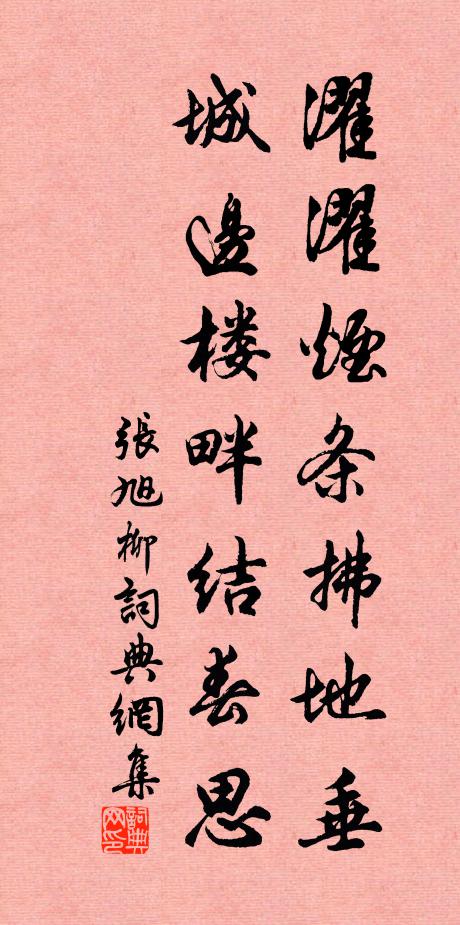 濯濯煙条拂地垂
城邊楼畔结春思
張旭柳詞典網集
詞典网印